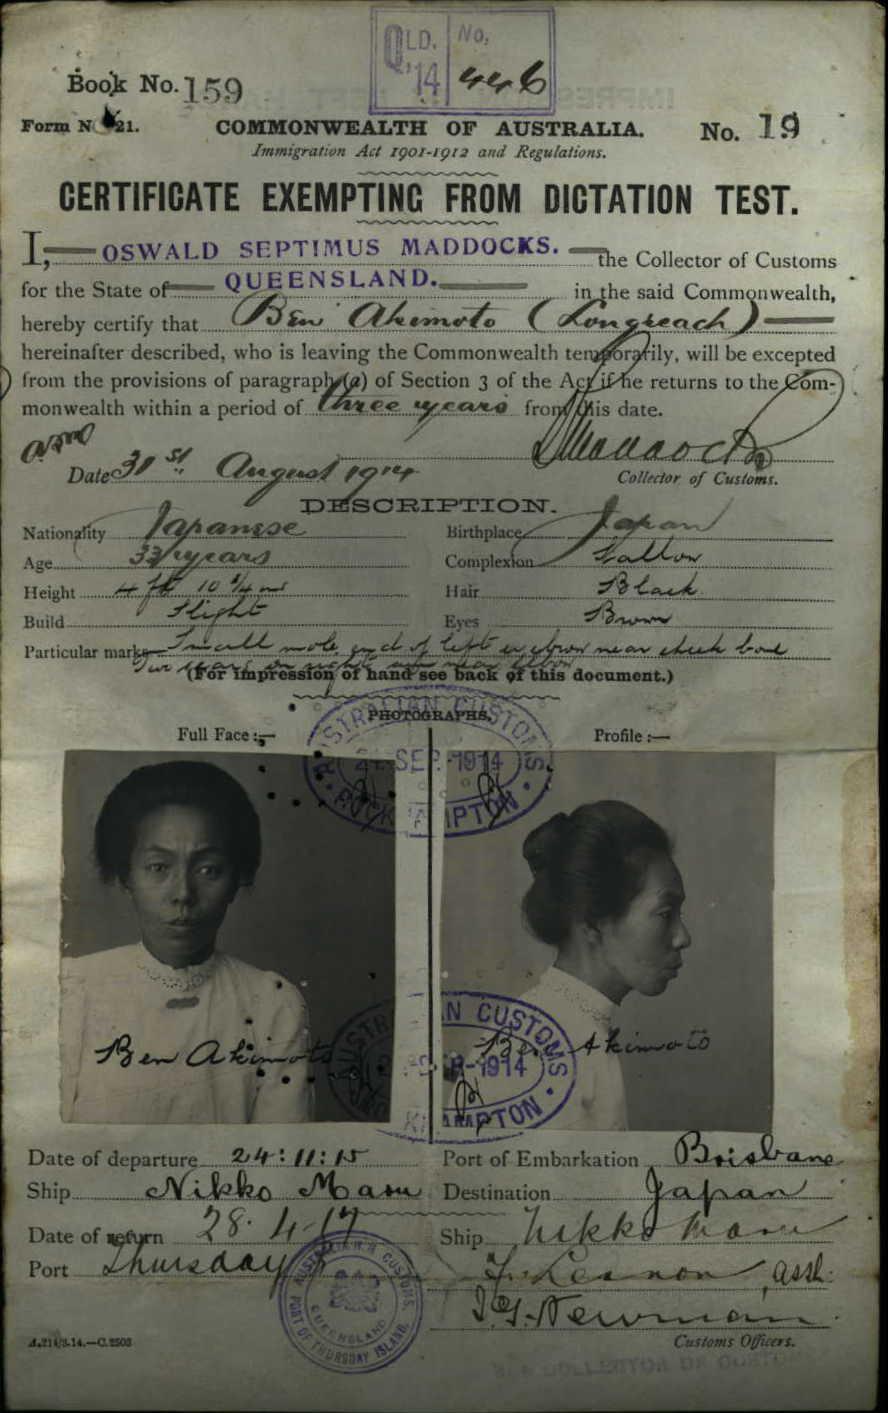 QLD. No.
'14 446
Book No. 159
Form No 21. COMMONWEALTH OF AUSTRALIA. No. 19
Immigration Act 1901-1912 and Regulations.
CERTIFICATE EXEMPTING FROM DICTATION TEST.
I, OSWALD SEPTIMUS MADDOCKS. the Collector of Customs
for the State of QUEENSLAND. in the said Commonwealth,
hereby certify that Ben Akimoto (Longreach)
hereinafter described, who is leaving the Commonwealth temporarily, will be excepted
from the provisions of paragraph (a) of Section 3 of the Act if he returns to the Com-
monwealth within a period of three years from this date.
OSMaddocks
Date 31st August 1914 Collector of Customs.
DESCRIPTION.
Nationality Japanese Birthplace Japan
Age 33 years Complexion Sallow
Height 4 ft 10 3/4 ins Hair Black
Build Slight Eyes Brown
Particular marks Small mole end of left eyebrow near cheek bone
Two scars on right arm near elbow
(For impression of hand see back of this document.)
PHOTOGRAPHS.
Full Face :— Profile :—
AUSTRALIAN CUSTOMS
SEP. 1914
ROCKHAMPTON
Ben Akimoto Ben Akimoto
AUSTRALIAN CUSTOMS
SEP-1914
ROCKHAMPTON
Date of departure 24:11:15 Port of Embarkation Brisbane
Ship Nikko Maru Destination Japan
Date of return 28.4.17 Ship Nikko Maru
Port Thursday I
AUSTRALIAN CUSTOMS.
QUEENSLAND
PORT OF THURSDAY ISLAND.
Lennon, asst.
Newman
A.214/3.14.—C.2503 Customs Officers.